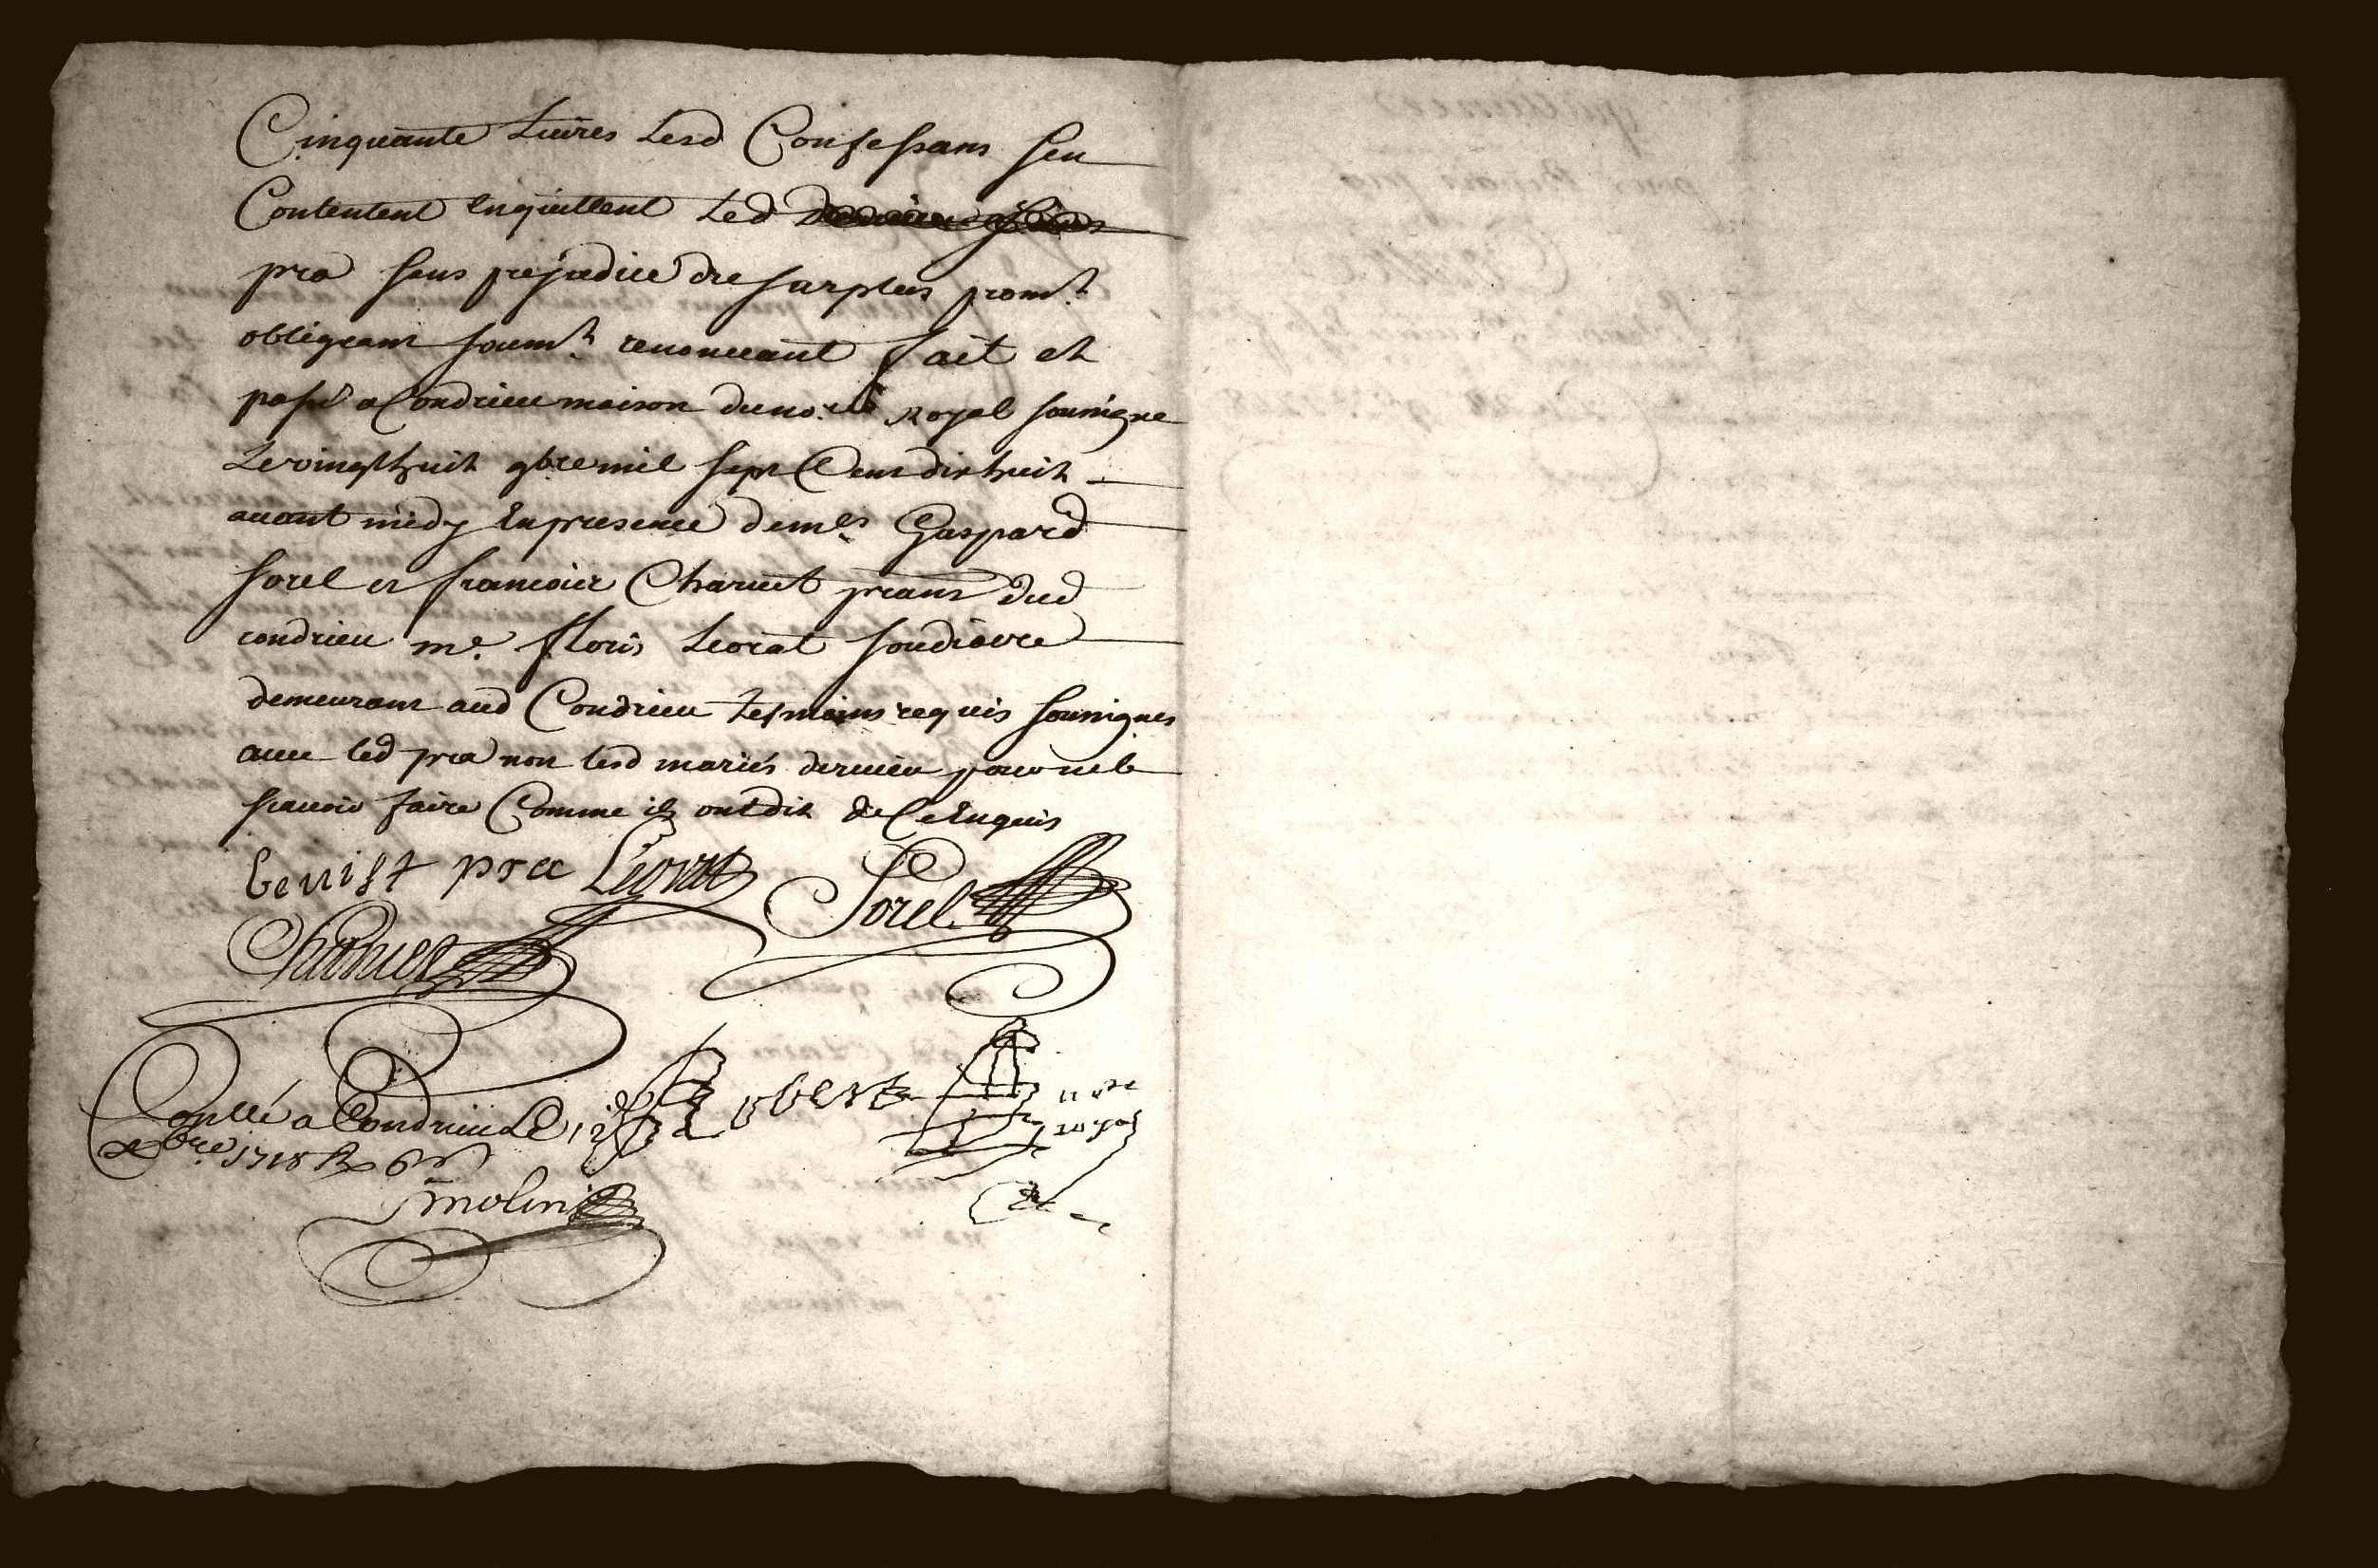 Cinquante Livres Lesd Confessans sen
Contentent enquittent Led
pra sans prejudice du surplus prom.t
obligeant soum.t renonceant fait et
passé a Condrieu maison du no.re Royal soussigne
Le vingthuit gbre mil sept Cens dix huit
avant midy En presence de m.es Gaspard
sorel et francois Charvet prans dud
condrieu m.e floris Leorat soudiacre
demeurant aud Condrieu tesmoins requis soussignes
avec led pra non lesd mariés dervieu pour ne le
scavoir faire Comme ils ont dit de Ce Enquis
benist pra Leorat Sorel
Charvet
Conllé a Condrieu Le 12
xbre 1718 R 6 s
Robert no.re
royal
Molin